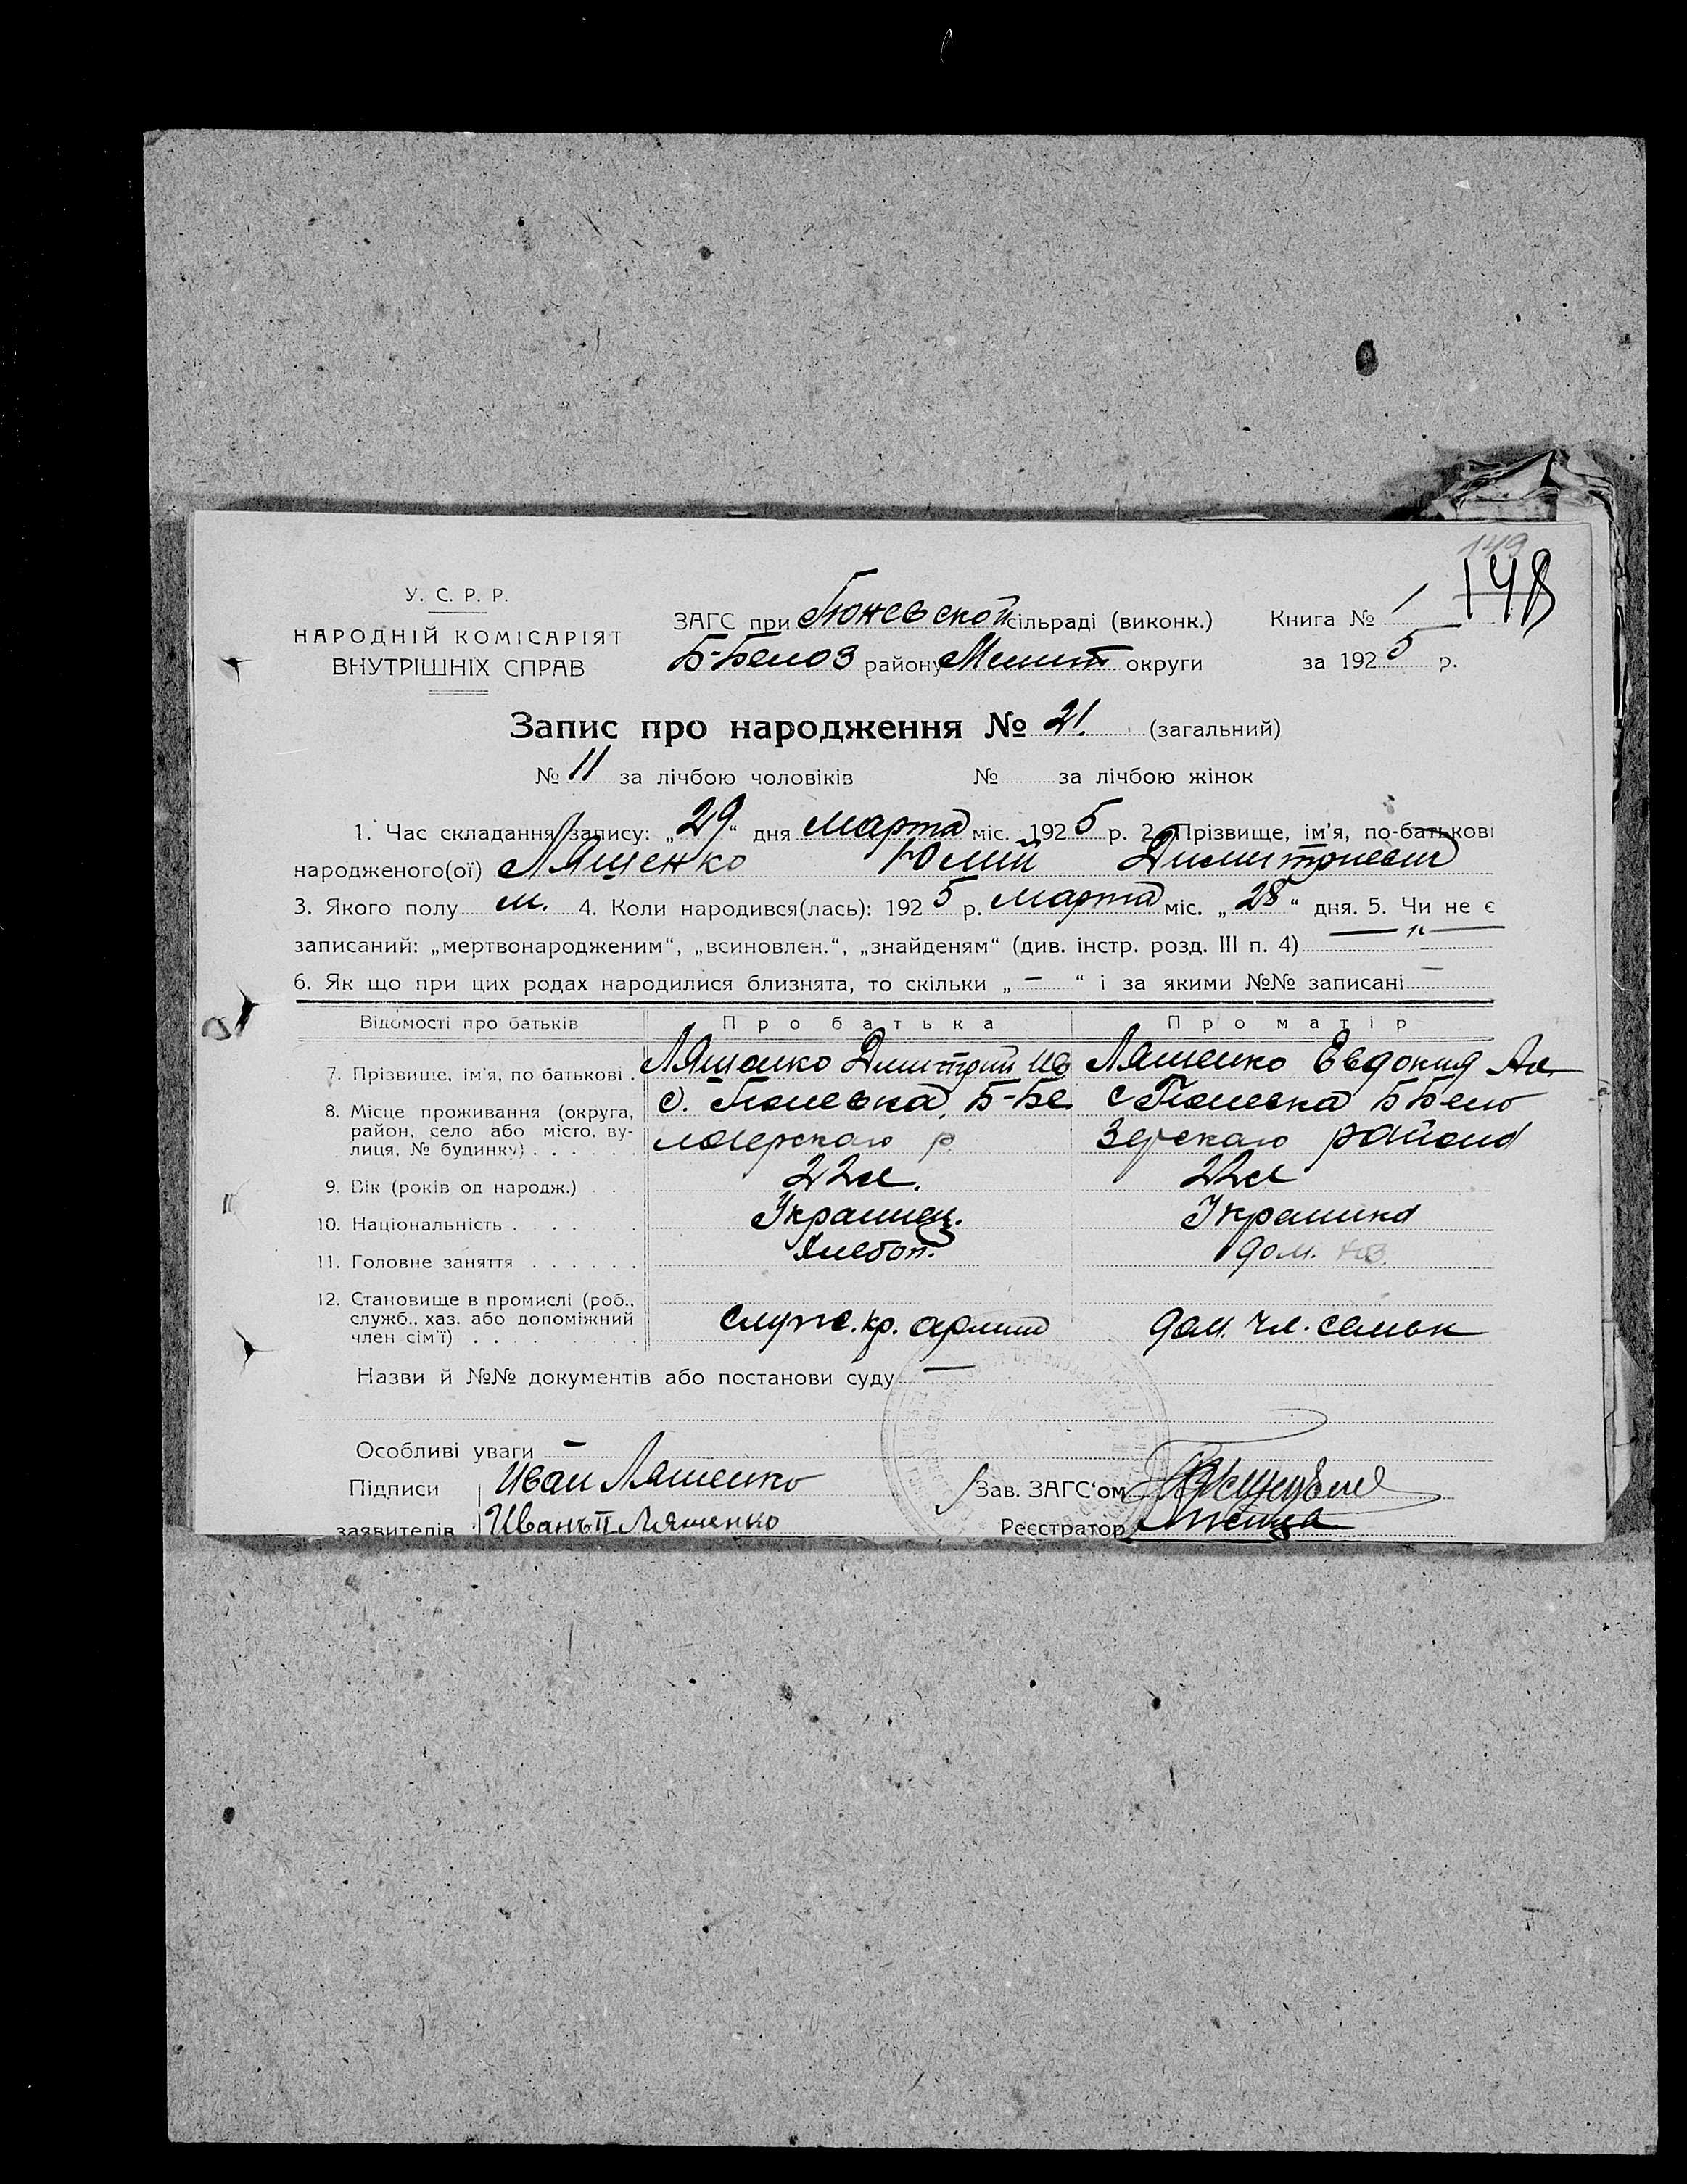 149
148
У. С. Р. Р.
НАРОДНІЙ КОМІСАРІЯТ
ВНУТРІШНІХ СПРАВ
ЗАГС при сільраді (виконк.) Книга № 1
Б-Белоз району Мелит округи за 1925 р.
Запис про народження № 21. (загальний)
№ 11 за лічбою чоловіків № за лічбою жінок
1. Час складання запису: „29“ дня марта міс. 1925 р. 2. Прізвище, ім'я, по-батькові
народженого(ої) Лященко Юлий Дмитриевич
3. Якого полу м. 4. Коли народився(лась): 1925 р. марта міс. „28“ дня. 5. Чи не є
записаний: „мертвонародженим“, „всиновлен.“, „знайденям“ (див. інстр. розд. III п. 4) — „ —
6. Як що при цих родах народилися близнята, то скільки „ — “ і за якими №№ записані —
Відомості про батьків Про батька Про матір
7. Прізвище, ім'я, по батькові . Лященко Дмитрий Ив Лященко Евдокия Ал.
8. Місце проживання (округа, с. Б-Бе с Б Бело
район, село або місто, ву- лозерского р зерского района
лиця, № будинку) . . . . . .
9. Вік (років од народж.) . . 22 л. 22 л
10. Національність . . . . Украинец. Украинка
11. Головне заняття . . . . . . Хлебоп. дом. хоз.
12. Становище в промислі (роб.,
служб., хаз. або допоміжний служ. кр. армии дом. чл. семьи
член сім'ї) . .
Назви й №№ документів або постанови суду —
Особливі уваги —
Підписи Иван Лященко Зав. ЗАГС'ом
заявителів Иванъ II Лященко Реєстратор